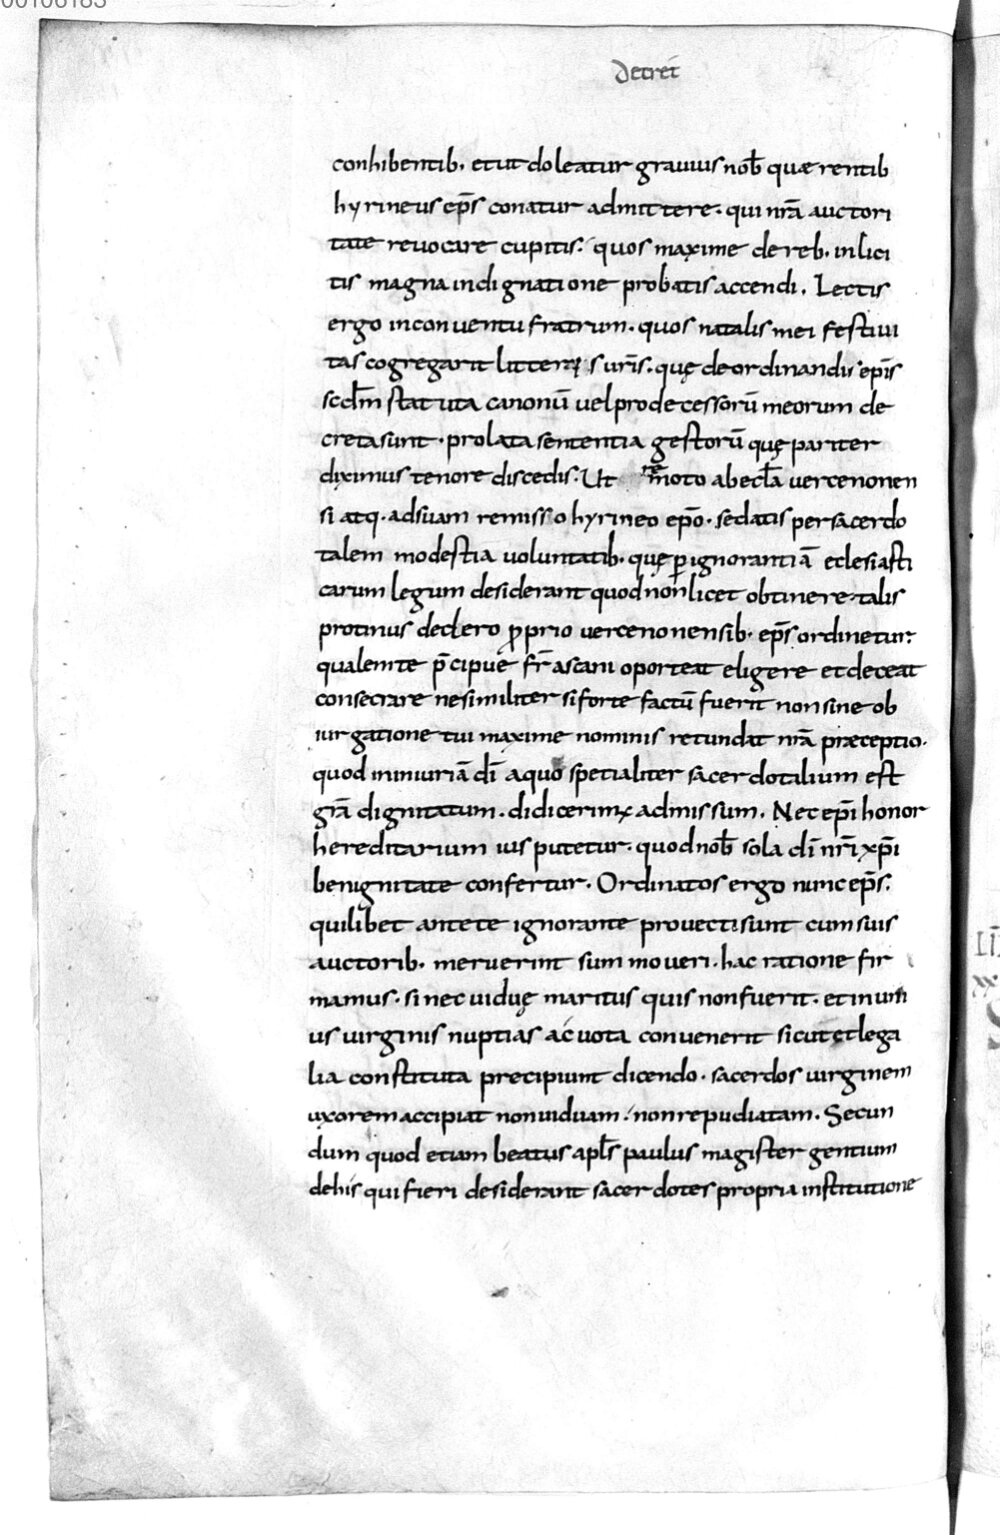 00106183
Decreī
conhibentib· et ut doleatur grauius nob̄ quæ rentib
hyrineus ep̄s conatur admittere· qui nr̄a auctori
tate reuocare cupitis· quos maxime de reb· inlici
tis magna indignatione probatis accendi. Lectis
ergo in conuentu fratrum· quos natalis mei festiui
tas cogregarit litteris ur̄is· quę de ordinandis ep̄is
scdm̄ statuta canonū uel prodecessorū meorum de
creta sunt· prolata sententia gestorū quę pariter
diximus tenore discedis· Ut remoto ab ecl̄a uercenonen
si atq· ad suam remisso hyrineo ep̄o· sedatis per sacerdo
talem modestia uoluntatib· quę ꝑ ignorantiā eclesiasti
carum legum desiderant quod non licet obtinere· talis
protinus declero ꝓprio uercenonensib· ep̄s ordinetur·
qualem te p̄cipue fr̄ ascani oporteat eligere et deceat
consecrare ne similiter si forte factū fuerit non sine ob
iurgatione tui maxime nominis retundat nr̄a præceptio·
quod in iniuriā dī a quo specialiter sacerdotilium est
gr̄a dignitatum· didicerimꝰ admissum. Nec ep̄i honor
hereditarium ius putetur· quod nob̄ sola dī nr̄i xp̄i
benignitate confertur. Ordinatos ergo nunc ep̄s·
quilibet ante te ignorante prouecti sunt cum suis
auctorib· meruerint summoueri· hac ratione fir
mamus· si nec uiduę maritus quis non fuerit· et in uni
us uirginis nuptias ac uota conuenerit sicut et lega
lia constituta precipiunt dicendo· sacerdos uirginem
uxorem accipiat non uiduam· non repudiatam. Secun
dum quod etiam beatus apl̄s paulus magister gentium
de his qui fieri desiderant sacerdotes propria institutione